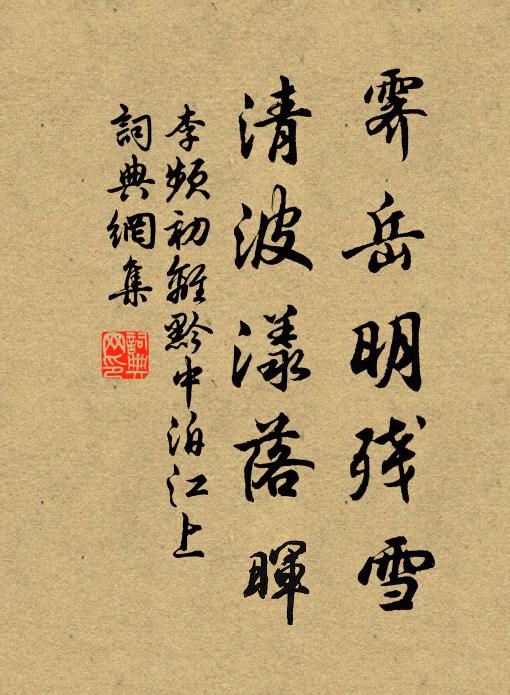 霽岳明残雪
清波漾落暉
李频初離黔中泊江上
詞典網集
詞典網印